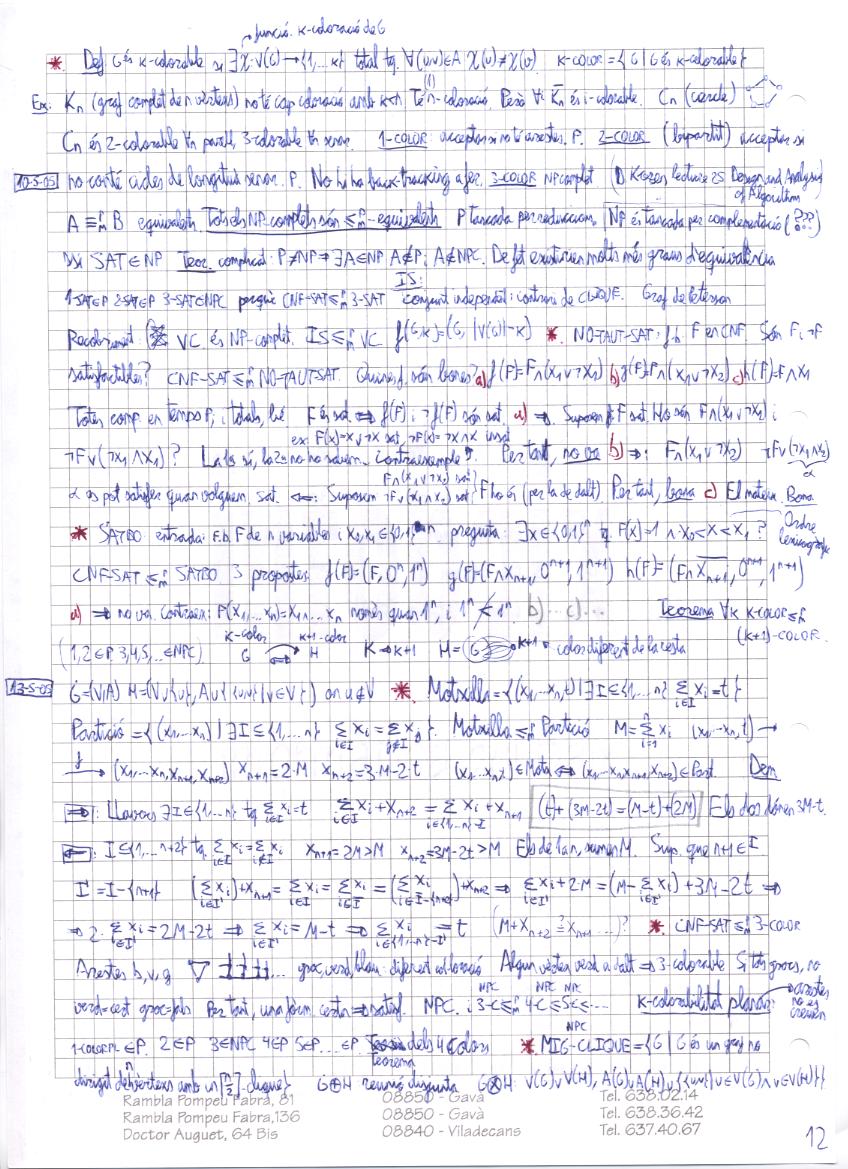 → funció. K-coloració de G
* Def G és K-colorable si ∃χ: V(G)→{1,...K} total tq. ∀(u,v)∈A χ(u)≠χ(v). K-COLOR={G | G és K-colorable}
Ex: Kn (graf complet de n vèrtexs) no té cap coloració amb k<n. Té n-coloració. Però ∀i K̅n és i-colorable. Cn (cercle)
Cn és 2-colorable ∀n parell, 3-colorable ∀n senar. 1-COLOR acceptar si no té arestes. P. 2-COLOR (bipartit) acceptar si
10-5-05 no conté cicles de longitud senar. P. No hi ha back-tracking a fer. 3-COLOR NPcomplet (D. Kozen lecture 25 Design and Analysis of Algorithms
A ≡ᵖm B equivalents. Tots els NP complets són ≤ᵖm-equivalents P tancada per reduccions. NP és tancada per complementació (???)
SAT∈NP Teor. complicat: P≠NP ⇒ ∃A∈NP A∉P i A∉NPC. De fet existirien molts més graus d'equivalència
1-SAT∈P 2-SAT∈P 3-SAT∈NPC perquè CNF-SAT≤ᵖm 3-SAT IS: conjunt independent: contrari de CLIQUE. Graf de Peterson
Recobriment VC és NP-complet. IS≤ᵖm VC f(G,K)=(G, |V(G)|-K) * NO-TAUT-SAT: f.b. F en CNF. Són F i ¬F
satisfactibles? CNF-SAT ≤ᵖm NO-TAUT-SAT. Quines f són bones? a) f(F)=F∧(x1∨¬x1) b) g(F)=F∧(x1∨¬x2) c) h(F)=F∧x1
Totes comp. en temps P, i totals, bé F és sat ⇔ f(F) i ¬f(F) són sat. a) ⇒ Suposem F sat. Ho són F∧(x1∨¬x1) i
ex: F(x)=x∨¬x sat, ¬F(x)=¬x∧x insat
¬F∨(¬x1∧x1)? La 1a sí, la 2a no ho sabem. Contraexemple. Per tant, no va b) ⇒: F∧(x1∨¬x2) ¬F∨(¬x1∧x2) α
α es pot satisfer quan volguem, sat. ⇐: Suposem F∧(x1∨¬x2) sat ¬F∨(¬x1∧x2) sat F ho és (per la de dalt). Per tant, bona c) El mateix. Bona.
* SATBO entrada: f.b. F de n variables i x0,x1∈{0,1}ⁿ pregunta: ∃x∈{0,1}ⁿ tq. F(x)=1 ∧ x0<x<x1? Ordre lexicogràfic
CNF-SAT ≤ᵖm SATBO 3 propostes f(F)=(F,0ⁿ,1ⁿ) g(F)=(F∧xn+1, 0ⁿ⁺¹, 1ⁿ⁺¹) h(F)=(F∧x̅n+1, 0ⁿ⁺¹, 1ⁿ⁺¹)
a) ⇒ no va. contraex: F(x1,...xn)=x1...xn només quan 1ⁿ, i 1ⁿ≮1ⁿ b)... c)... Teorema ∀K K-COLOR≤ᵖm (K+1)-COLOR.
(1,2∈P, 3,4,5,...∈NPC) K-color G → K+1-color H K→K+1 H= G K+1 color diferent de la resta
13-5-05 G=(V,A) H=(V∪{u}, A∪{{u,v}|v∈V}) on u∉V * Motxilla={(x1,...xn,t) | ∃I⊆{1,...n} Σi∈I xi=t}
Partició={(x1...xn) | ∃I⊆{1,...n} Σi∈I xi=Σj∉I xj}. Motxilla ≤ᵖm Partició M=Σi=1ⁿ xi (x1,...xn,t) →
f→ (x1,...xn,xn+1,xn+2) xn+1=2·M xn+2=3·M-2·t (x1,...xn,t)∈Motx ⇔ (x1,...xn,xn+1,xn+2)∈Part. Dem
⇒: Llavors ∃I⊆{1,...n} tq Σi∈I xi=t Σi∈I xi+xn+2=Σi∈{1,...n}-I xi+xn+1 (t)+(3M-2t)=(M-t)+(2M) Els dos dónen 3M-t.
⇐: I⊆{1,...n+2} tq. Σi∈I xi=Σi∉I xi xn+1=2M>M xn+2=3M-2t>M Els de 1 a n, sumen M. Sup. que n+1∈I
I'=I-{n+1} (Σi∈I' xi)+xn+1=Σi∈I xi=Σi∈I̅ xi=(Σi∈I̅-{n+2} xi)+xn+2 ⇒ Σi∈I' xi+2M=(M-Σi∈I' xi)+3M-2t ⇒
⇒ 2·Σi∈I' xi=2M-2t ⇒ Σi∈I' xi=M-t ⇒ Σi∈{1,...n}-I' xi=t (M+xn+2 ≟ xn+1...)? * CNF-SAT≤ᵖm 3-COLOR
Arestes b,v,g groc, verd, blau: diferent coloració Algun vèrtex verd a dalt ⇒ 3-colorable Si tots grocs, no
verd=cert groc=fals Per tant, una fórm. certa ⇒ satisf. NPC. i 3-C≤ᵖm 4-C≤5-C≤... K-colorabilitat planar: arestes no es creuen
1-COLORPL∈P. 2∈P 3∈NPC 4∈P 5∈P...∈P Teorema dels 4 Colors * MIG-CLIQUE={G | G és un graf no
dirigit de n vèrtexs amb un ⌈n/2⌉-clique} G⊕H reunió disjunta G⊗H: V(G)∪V(H), A(G)∪A(H)∪{{u,v}|u∈V(G)∧v∈V(H)}
Rambla Pompeu Fabra, 81 08850 - Gavà Tel. 638.02.14
Rambla Pompeu Fabra,136 08850 - Gavà Tel. 638.36.42
Doctor Auguet, 64 Bis 08840 - Viladecans Tel. 637.40.67
12